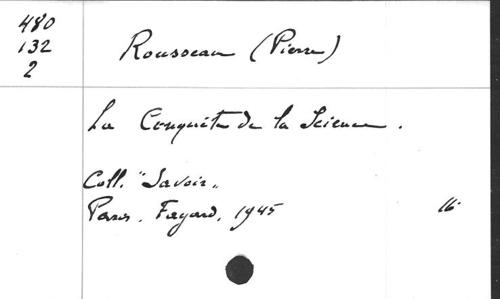 480
132
2
Rousseau (Pierre)
La Conquête de la Science.
Coll. "Savoir"
Paris. Fayard, 1945 16